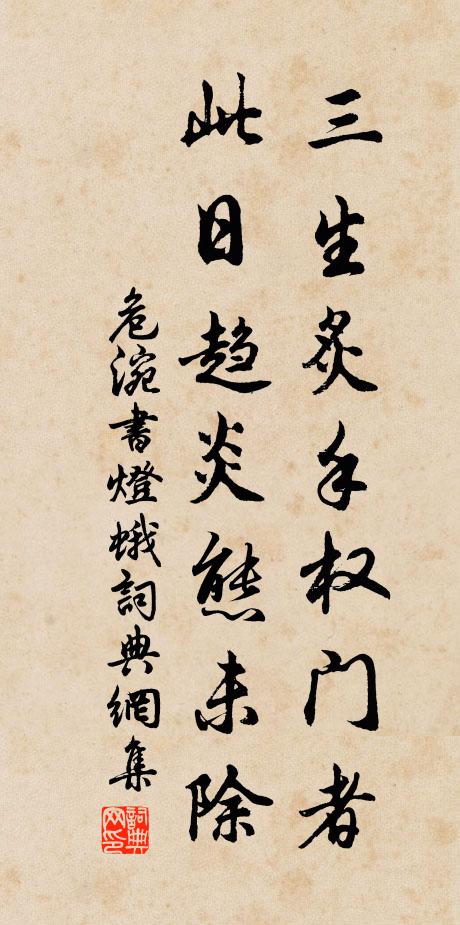 三生炙手权门者
此日趋炎熊未除
危涴書燈蛾詞典網集
詞典网印